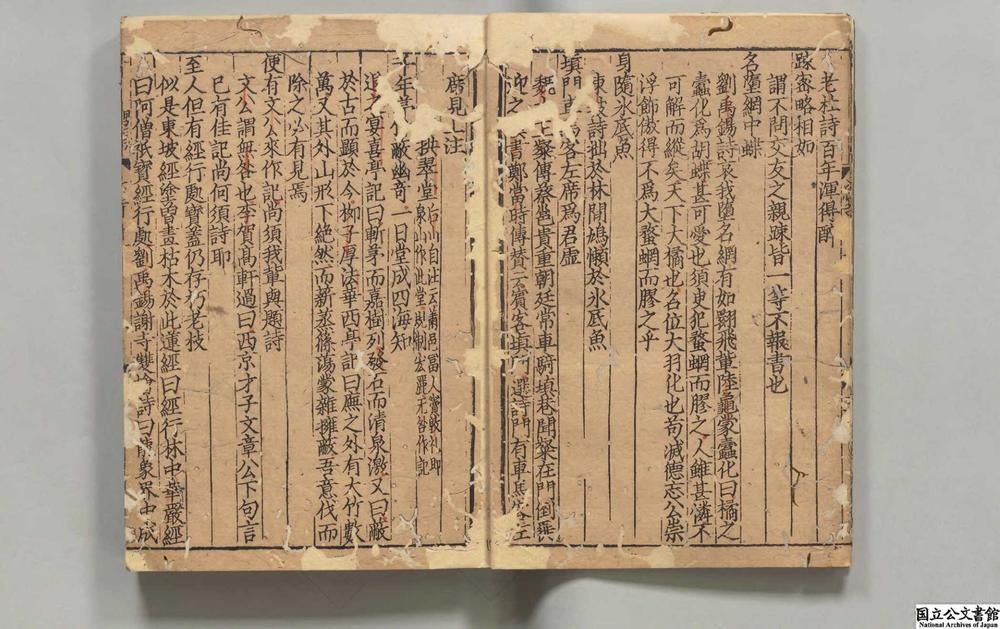 老杜詩百年渾得醉
踈密略相如
謂不問交友之親踈皆一等不報書也
名墮網中蛛
劉禹錫詩哀我墮名網有如翾飛輩陸龜蒙蠹化曰橘之
蠹化為胡蝶甚可愛也須臾犯蝥蛧而膠之人雖甚憐不
可解而縱矣天下大橘也名位大羽化也苟滅德忘公崇
浮飾傲得不為大蝥蛧而膠之乎
身隨氷底魚
東坡詩拙於林間鳩懶於氷底魚
填門 客左席為君虛
粲傳蔡邕貴重朝廷常車騎填巷聞粲在門倒屣
迎之 書鄭當時傳賛云賓客填門選詩門有車馬客
寄見 注
挾翠堂
千年 敞幽奇一日堂成四海知
之宴喜亭記曰斬茅而嘉樹列發石而清泉激又曰蔽
於古而顯於今柳子厚法華西亭記曰廡之外有大竹數
萬又其外山形下絶然而薪蒸篠蕩蒙雜擁蔽吾意伐而
除之必有見焉
便有文公來作記尚須我輩與題詩
文公謂無咎也李賀高軒過曰西京才子文章公下句言
已有佳記尚何須詩耶
至人但有經行處寶蓋仍存朽老枝
似是東坡經塗 畫枯木於此蓮經曰經行林中華嚴經
曰阿僧祇寶經行處劉禹錫謝寺雙檜詩曰龍象界中成
国立公文書館
National Archives of Japan